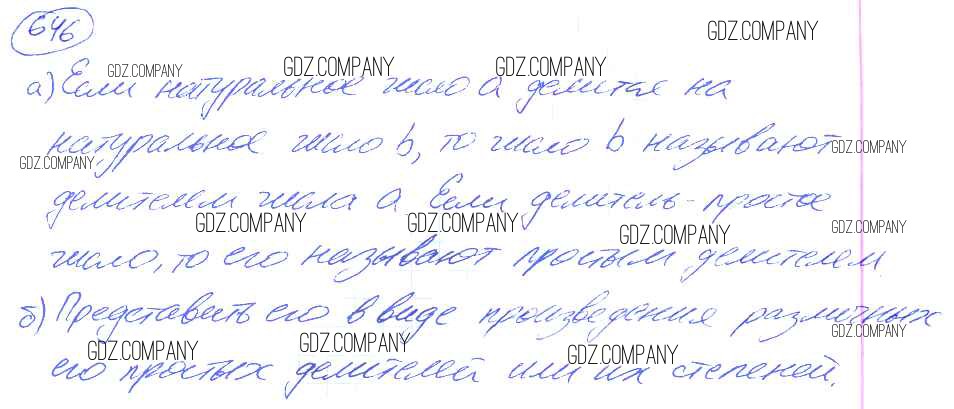 646
GDZ.COMPANY
GDZ.COMPANY GDZ.COMPANY GDZ.COMPANY
а) Если натуральное число a делится на
натуральное число b, то число b называют
GDZ.COMPANY GDZ.COMPANY
делителем числа a. Если делитель - простое
GDZ.COMPANY GDZ.COMPANY GDZ.COMPANY GDZ.COMPANY
число, то его называют простым делителем
б) Представить его в виде произведения различных
GDZ.COMPANY GDZ.COMPANY GDZ.COMPANY GDZ.COMPANY
его простых делителей или их степеней.